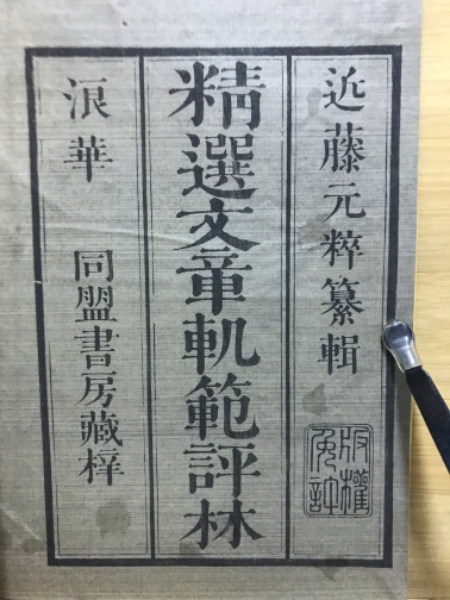 近藤元粹纂輯
版權免許
精選文章軌範評林
浪華 同盟書房藏梓